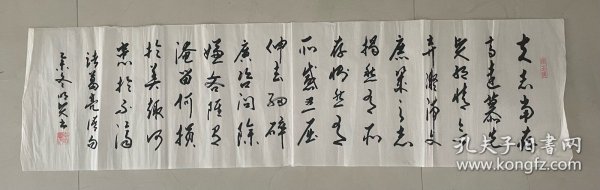 夫志当存
高远慕先
贤绝情欲
弃凝滞使
庶几之志
揭然有所
存恻然有
所感忍屈
伸去细碎
广咨问除
嫌吝虽有
淹留何损
於美趣何
患於不济
诸葛亮语句
冬
孔夫子旧书网
www.kongfz.com